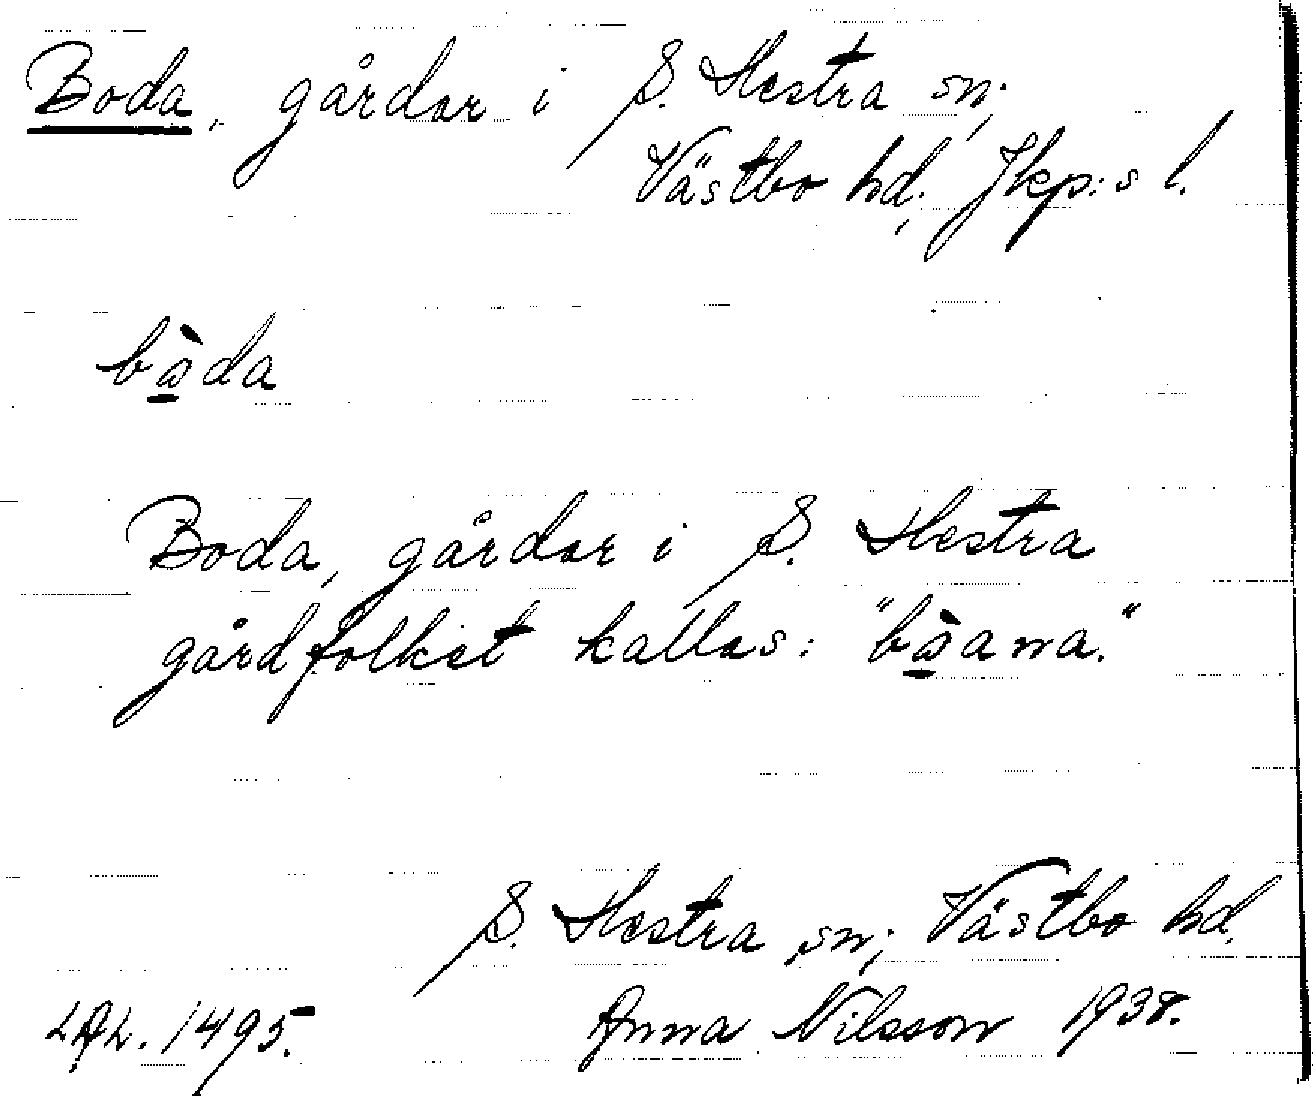 Boda, gårdar i S. Hestra sn;
Västbo hd. Jkp:s l.
bⱥ̀da
Boda, gårdar i S. Hestra
gårdfolket kallas: "bⱥ̀ana."
S. Hestra sn; Västbo hd.
LAL. 1495. Anna Nilsson 1938.